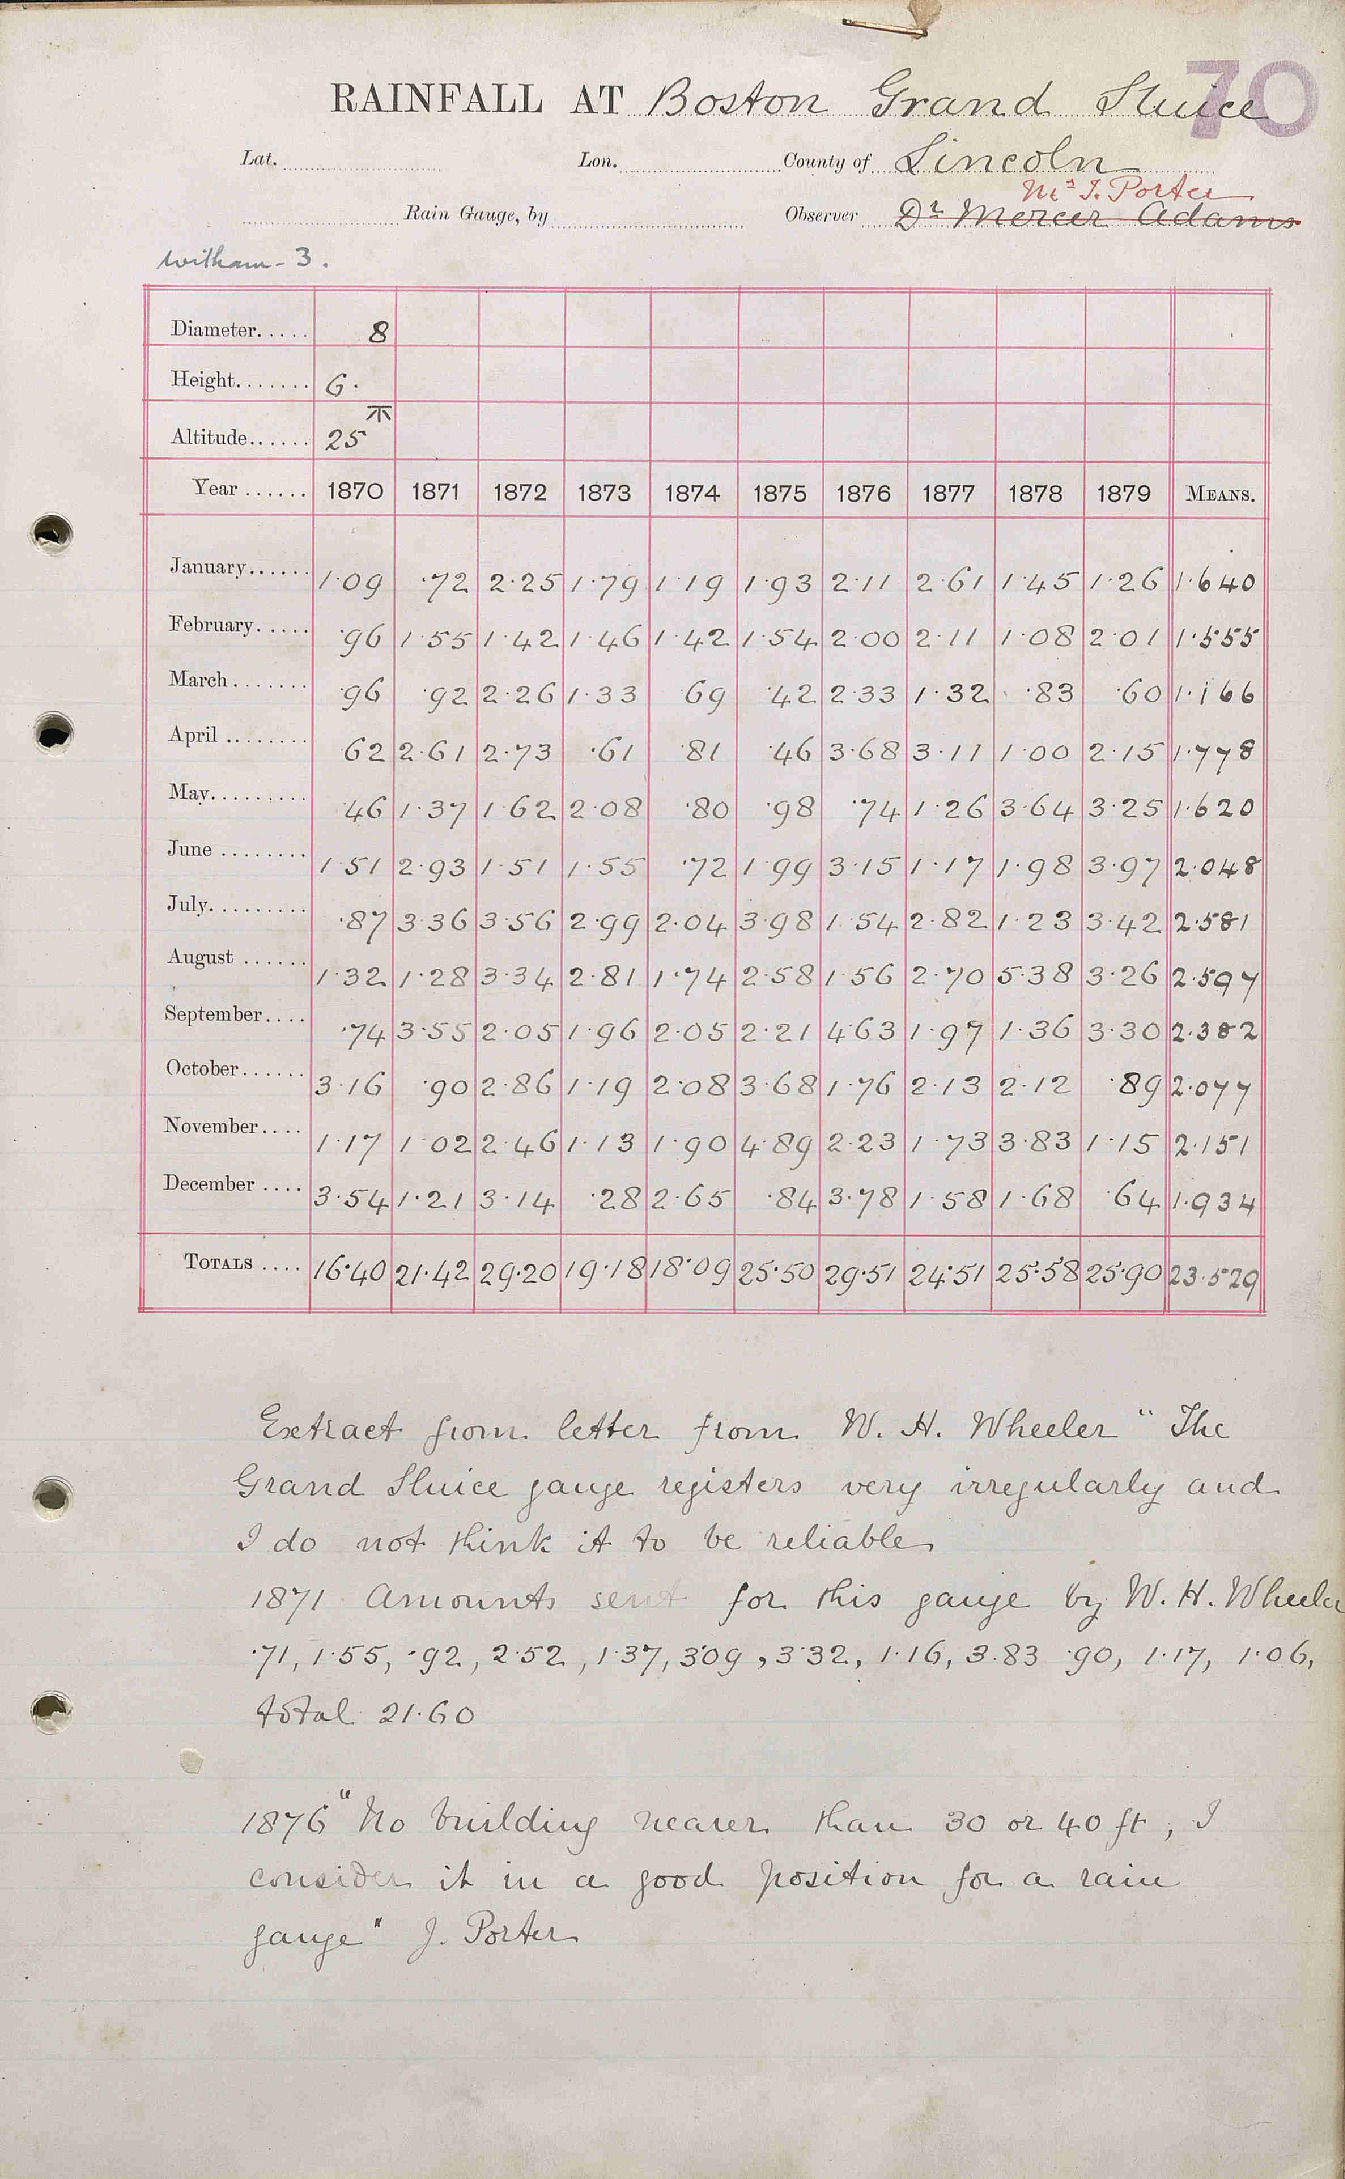 70
RAINFALL AT Boston Grand Sluice
Lat. Lon. County of Lincoln
Mr J. Porter
Rain Gauge, by Observer Dr Mercer Adams
Witham - 3.
Diameter..... 8
Height....... 6.
Altitude...... 25
Year ...... 1870 1871 1872 1873 1874 1875 1876 1877 1878 1879 MEANS.
January...... 1·09 ·72 2·25 1·79 1·19 1·93 2·11 2·61 1·45 1·26 1·640
February..... ·96 1·55 1·42 1·46 1·42 1·54 2·00 2·11 1·08 2·01 1·555
March....... ·96 ·92 2·26 1·33 69 ·42 2·33 1·32 ·83 ·60 1·166
April ........ 62 2·61 2·73 ·61 ·81 ·46 3·68 3·11 1·00 2·15 1·778
May......... ·46 1·37 1·62 2·08 ·80 ·98 ·74 1·26 3·64 3·25 1·620
June ........ 1·51 2·93 1·51 1·55 ·72 1·99 3·15 1·17 1·98 3·97 2·048
July......... ·87 3·36 3·56 2·99 2·04 3·98 1·54 2·82 1·23 3·42 2·581
August ...... 1·32 1·28 3·34 2·81 1·74 2·58 1·56 2·70 5·38 3·26 2·597
September.... ·74 3·55 2·05 1·96 2·05 2·21 4·63 1·97 1·36 3·30 2·382
October...... 3·16 ·90 2·86 1·19 2·08 3·68 1·76 2·13 2·12 ·89 2·077
November.... 1·17 1·02 2·46 1·13 1·90 4·89 2·23 1·73 3·83 1·15 2·151
December .... 3·54 1·21 3·14 ·28 2·65 ·84 3·78 1·58 1·68 ·64 1·934
TOTALS .... 16·40 21·42 29·20 19·18 18·09 25·50 29·51 24·51 25·58 25·90 23·529
Extract from letter from W. H. Wheeler "The
Grand Sluice gauge registers very irregularly and
I do not think it to be reliable
1871 Amounts sent for this gauge by W. H. Wheeler
·71, 1·55, ·92, 2·52, 1·37, 3·09, 3·32, 1·16, 3.83 ·90, 1·17, 1·06,
total 21·60
1876 "No building nearer than 30 or 40 ft, I
consider it in a good position for a rain
gauge" J. Porter